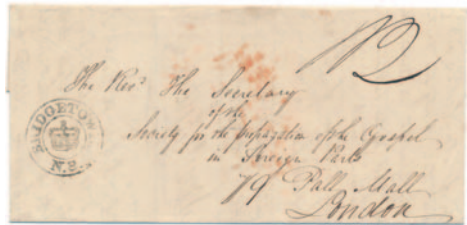 12
The Revd. The Secretary
of the
Society for the Propagation of the Gospel
in Foreign Parts
79 Pall Mall
London
BRIDGETOWN
N.S.